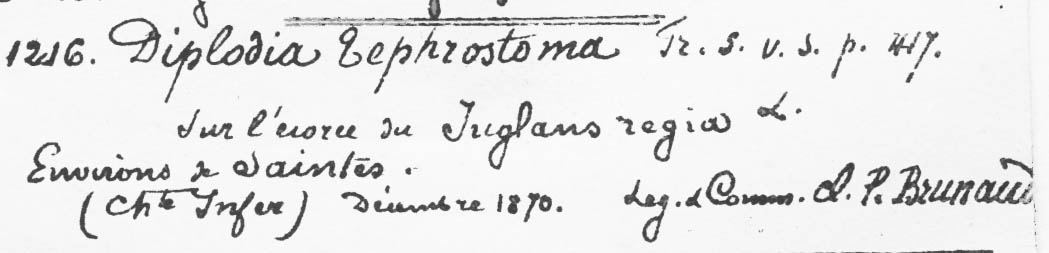 1216. Diplodia Tephrostoma Fr. S. v. S. p. 417.
Sur l'écorce du Juglans regia L.
Environs de Saintes.
(Chte Infer) Décembre 1870. Leg. & Comm. d. P. Brunaud